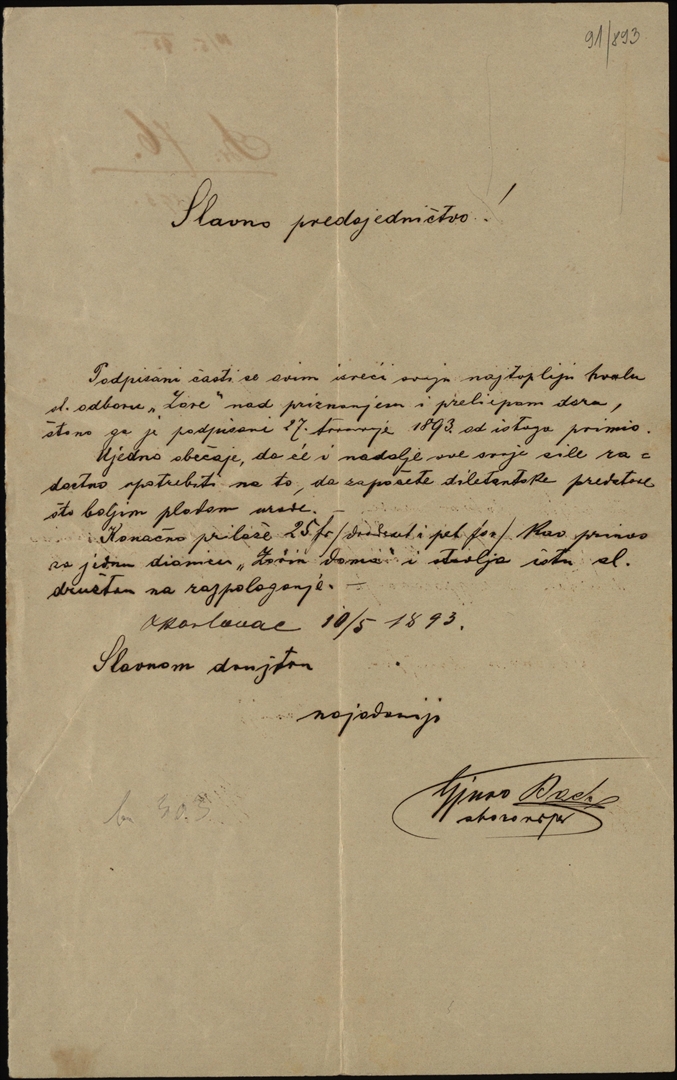 91/893
Slavno predsjedničtvo!
Podpisani časti se ovim izreći svoju najtopliju hvalu
sl. odboru „Zore" nad priznanjem i preliepom daru,
štono ga je podpisani 27. travnja 1893. od istoga primio.
Ujedno obećaje, da će i nadalje sve svoje sile ra-
dostno upotrebiti na to, da započete diletantske predstave
što boljim plodom urode. –
Konačno prilaže 25 fr / dvadeset i pet for / kao prinos
za jednu dionicu „Zorin doma" i stavlja istu sl.
družtvu na razpolaganje. –
Karlovac 10/5 1893.
Slavnom družtvu
najodaniji
Gjuro